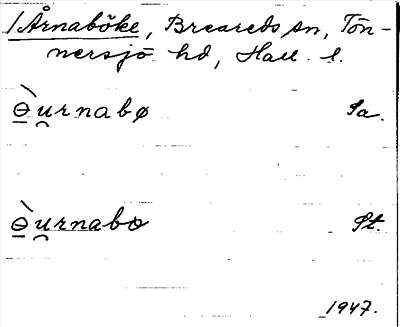 /Årnaböke, Breareds sn, Tön-
nersjö hd, Hall. l.
ɵ̲̀u̯rnabø Sa.
ɵ̲̀u̯rnabo St.
1947.